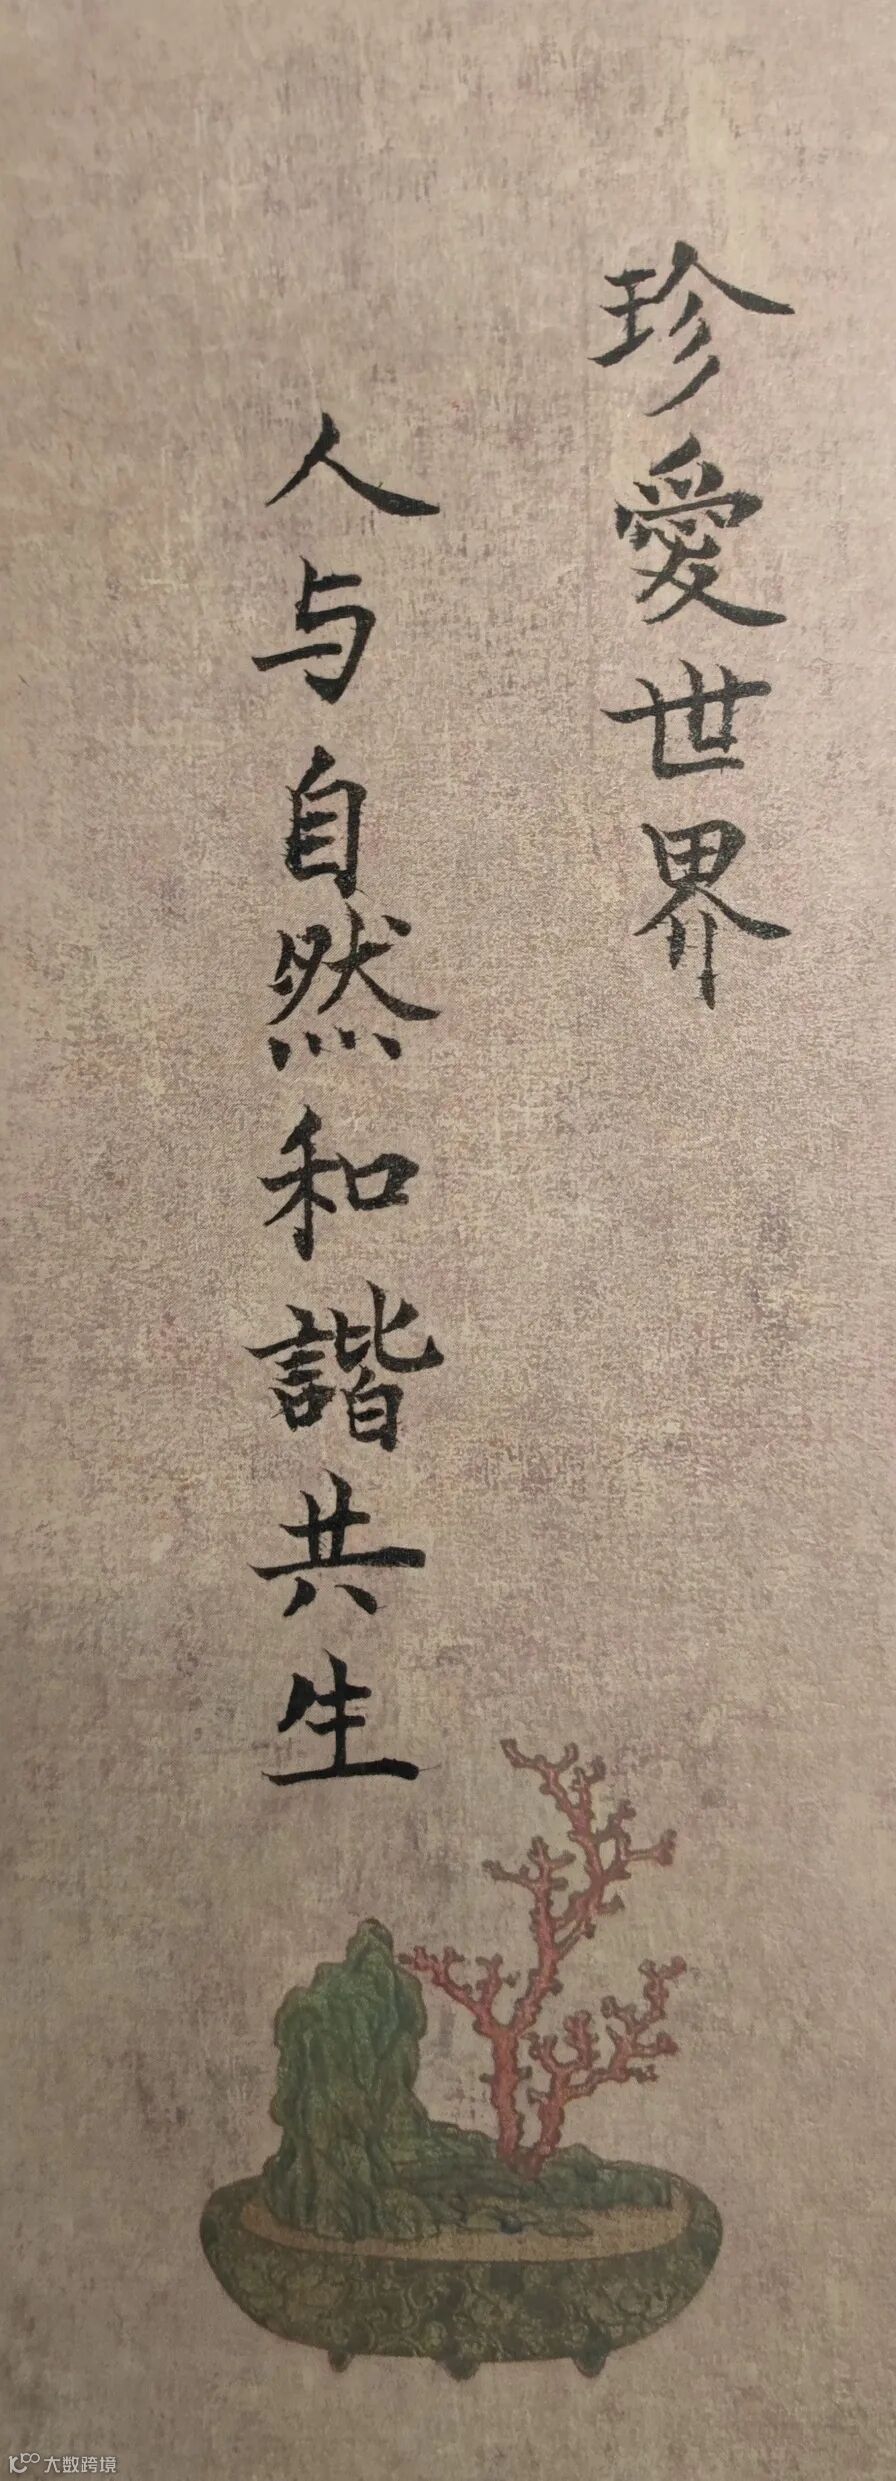 珍愛世界
人与自然和諧共生
大数跨境